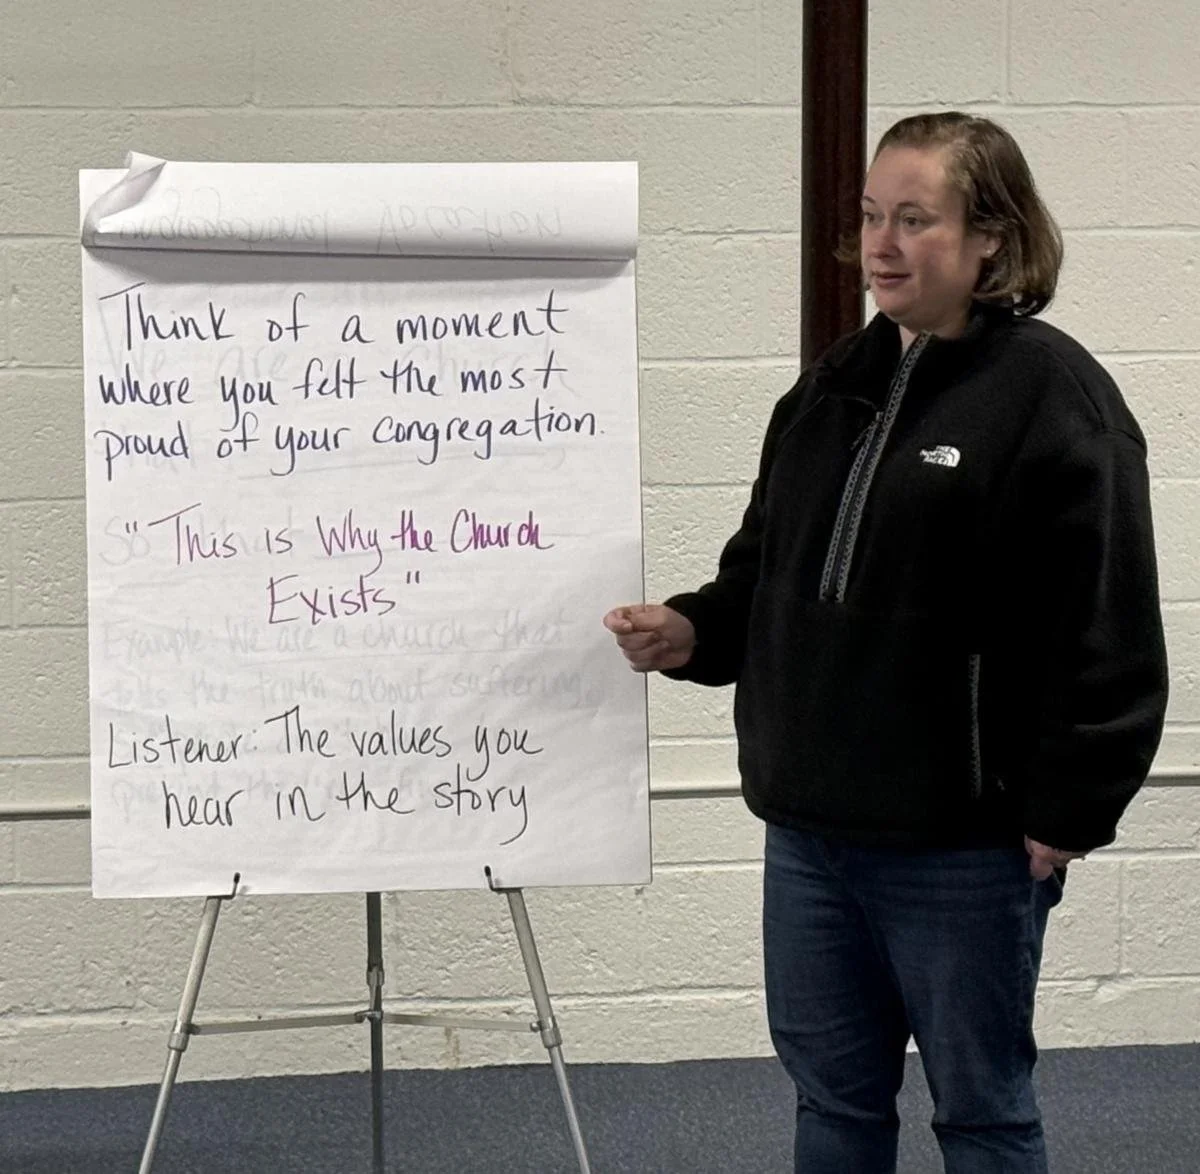 Think of a moment
where you felt the most
proud of your congregation.
"This is Why the Church
Exists"
Example: We are a church that
tells the truth about suffering,
Listener: The values you
hear in the story
THE
NORTH
FACE